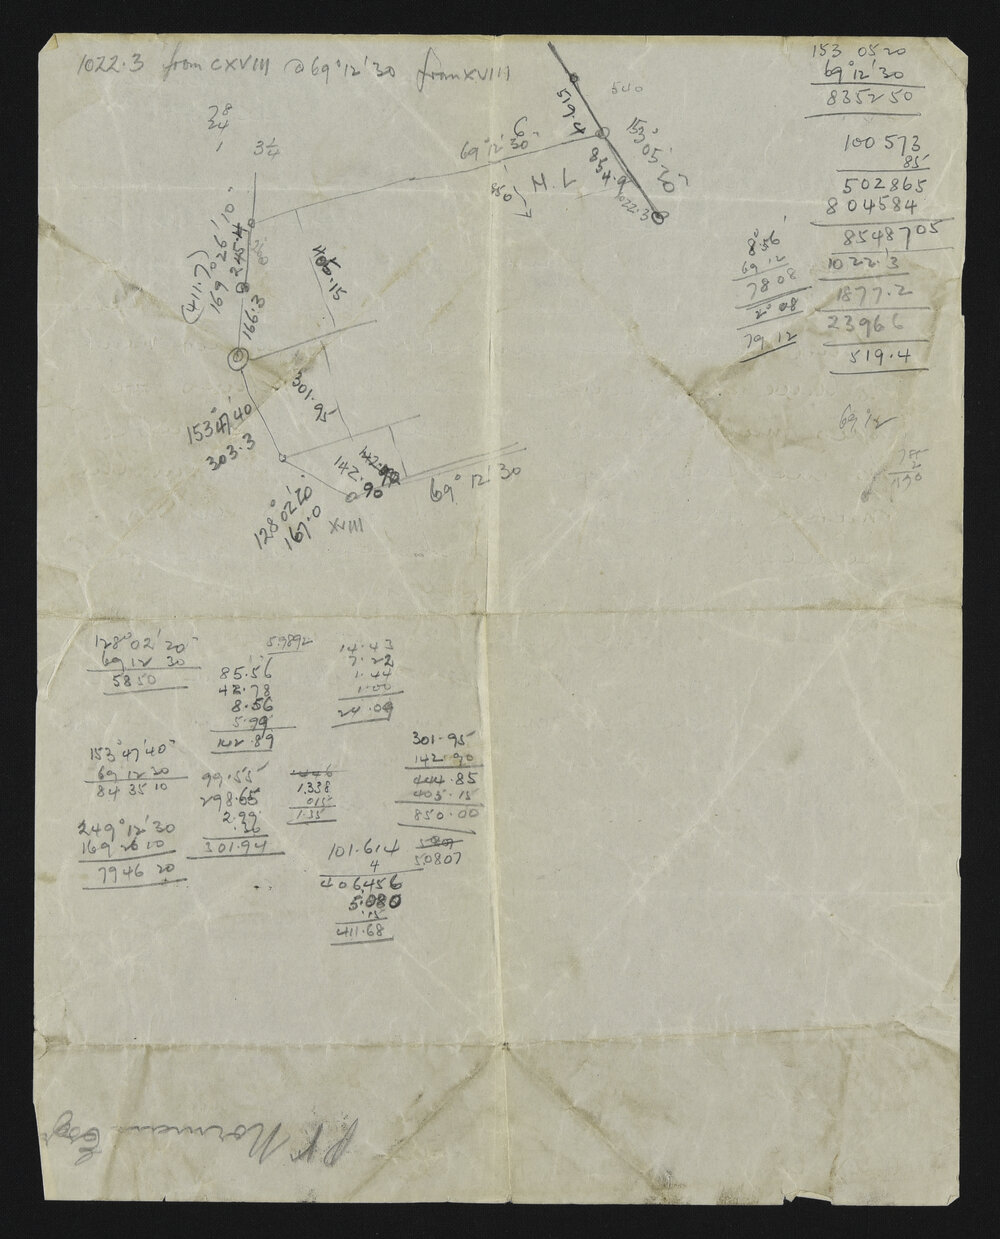 1022.3 from CXVIII @ 69°12'30 from XVIII
28
24
1
3¼
69°12'30"
6
850
H.L
519.4
640
153°05'20"
834.9
1022.3
(411.7)
169°26'10"
245.4
166.3
405.15
301.95
153 47 40
303.3
142.90
142.90
69° 12' 30
128°02'20"
167.0
XVIII
153 05 20
69°12'30
83 52 50
100 573
85
502865
804584
8548705
1022.3
1877.2
23966
519.4
8°56'
69 12
78 08
2° 08
79 12
69° 12
128°02'20"
69 12 30
58 50
5.9892
85.56
42.78
8.56
5.99
142.89
14.43
7.22
1.44
1.00
24.09
153°47'40"
69 12 30
84 35 10
99.55
298.65
2.99
.30
301.94
1.338
.015
1.35
301.95
142.90
444.85
405.15
850.00
249°12'30
169 26 10
79 46 20
50807
101.614
4
406456
5.080
.15
411.68
Norman Esq